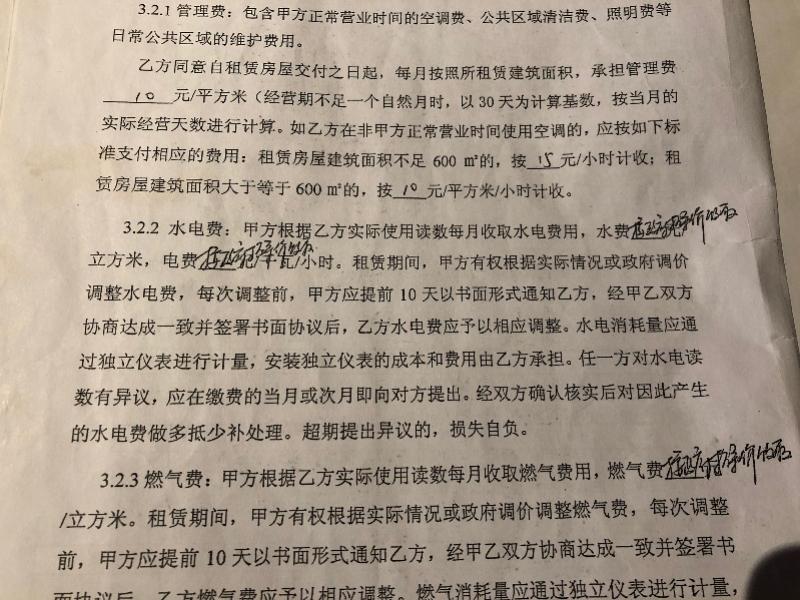 3.2.1 管理费：包含甲方正常营业时间的空调费、公共区域清洁费、照明费等
日常公共区域的维护费用。
乙方同意自租赁房屋交付之日起，每月按照所租赁建筑面积，承担管理费
10 元/平方米（经营期不足一个自然月时，以 30 天为计算基数，按当月的
实际经营天数进行计算。如乙方在非甲方正常营业时间使用空调的，应按如下标
准支付相应的费用：租赁房屋建筑面积不足 600 ㎡的，按 15 元/小时计收；租
赁房屋建筑面积大于等于 600 ㎡的，按 10 元/平方米/小时计收。
3.2.2 水电费：甲方根据乙方实际使用读数每月收取水电费用，水费
立方米，电费 /小时。租赁期间，甲方有权根据实际情况或政府调价
调整水电费，每次调整前，甲方应提前 10 天以书面形式通知乙方，经甲乙双方
协商达成一致并签署书面协议后，乙方水电费应予以相应调整。水电消耗量应通
过独立仪表进行计量，安装独立仪表的成本和费用由乙方承担。任一方对水电读
数有异议，应在缴费的当月或次月即向对方提出。经双方确认核实后对因此产生
的水电费做多抵少补处理。超期提出异议的，损失自负。
3.2.3 燃气费：甲方根据乙方实际使用读数每月收取燃气费用，燃气费
/立方米。租赁期间，甲方有权根据实际情况或政府调价调整燃气费，每次调整
前，甲方应提前 10 天以书面形式通知乙方，经甲乙双方协商达成一致并签署书
面协议后，乙方燃气费应予以相应调整。燃气消耗量应通过独立仪表进行计量，